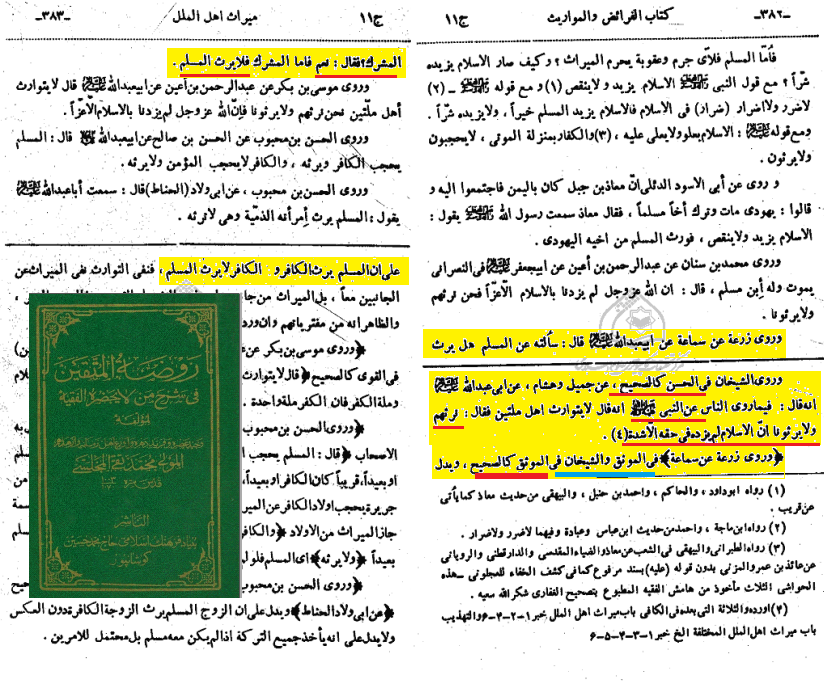 -٣٨٢-
كتاب الفرائض والمواريث
ج١١
فأمّا المسلم فلأى جرم وعقوبة يحرم الميراث ؟ وكيف صار الاسلام يزيده
شرّاً ؟ مع قول النبى ﷺ الاسلام يزيد ولاينقص (١) و مع قوله ﷺ ـ (٢)
لاضرر ولااضرار (ضرار) فى الاسلام فالاسلام يزيد المسلم خيراً ، ولايزيده شرّاً .
ومع قوله ﷺ : الاسلام يعلو ولايعلى عليه ، (٣) والكفار بمنزلة الموتى ، لايحجبون
ولايرثون .
و روى عن أبى الاسود الدئلى انّ معاذ بن جبل كان باليمن فاجتمعوا اليه و
قالوا : يهودى مات وترك أخاً مسلماً ، فقال معاذ سمعت رسول الله ﷺ يقول :
الاسلام يزيد ولاينقص ، فورث المسلم من اخيه اليهودى .
وروى محمد بن سنان عن عبدالرحمن بن أعين عن ابيجعفر عليه السلام فى النصرانى
يموت وله أبن مسلم ، قال : ان الله عزوجل لم يزدنا بالاسلام الّاعزّاً فنحن نرثهم
ولايرثونا .
وروى زرعة عن سماعة عن ابيعبدالله عليه السلام قال : سألته عن المسلم هل يرث
وروى الشيخان فى الحسن كالصحيح ، عن جميل وهشام ، عن ابى عبدالله عليه السلام
انه قال : فيماروى الناس عن النبى ﷺ انه قال لايتوارث اهل ملتين فقال : نرثهم
ولايرثونا انّ الاسلام لم يزده فى حقه الّاشدة (٤) .
﴿وروى زرعة عن سماعة﴾ فى الموثق والشيخان فى الموثق كالصحيح ، ويدل
(١) رواه ابوداود ، والحاكم ، واحمد بن حنبل ، والبيهقى من حديث معاذ كما يأتى
عن قريب .
(٢) رواه ابن ماجة ، واحمد من حديث ابن عباس وعبادة وفيهما لاضرر ولاضرار .
(٣) رواه الطبرانى والبيهقى فى الشعب عن معاذ والضياء المقدسى والدارقطنى والرويانى
عن عائذ بن عمرو المزنى بدون قوله (عليه) بسند مرفوع كما فى كشف الخفاء للعجلونى ـ هذه
الحواشى الثلاث مأخوذ من هامش الفقيه المطبوع بتصحيح الغفارى شكر الله سعيه .
(٤) اورده والثلاثة التى بعده فى الكافى باب ميراث اهل الملل خبر ١-٢-٤-٦ والتهذيب
باب ميراث اهل الملل المختلفة الخ خبر ١-٣-٤-٥-٦
ج١١
ميراث اهل الملل
-٣٨٣-
المشرك؟ فقال : نعم فاما المشرك فلايرث المسلم .
وروى موسى بن بكر عن عبدالرحمن بن أعين عن ابيعبدالله عليه السلام قال لايتوارث
أهل ملّتين نحن نرثهم ولايرثونا فإنّ الله عزوجل لم يزدنا بالاسلام الّاعزّاً .
وروى الحسن بن محبوب عن الحسن بن صالح عن ابيعبدالله عليه السلام قال : المسلم
يحجب الكافر ويرثه ، والكافر لايحجب المؤمن ولايرثه .
وروى الحسن بن محبوب ، عن ابى ولاد (الحناط) قال : سمعت أباعبدالله عليه السلام
يقول : المسلم يرث إمرأته الذمّية وهى لاترثه .
على ان المسلم يرث الكافر و الكافر لايرث المسلم ، فنفى التوارث نفى الميراث عن
الجانبين معاً ، بل الميراث من جا
والظاهر انه من مفترياتهم وان ورد
﴿وروى موسى بن بكر عن
فى القوى كالصحيح ﴿قال لايتوارث
وملة الكفر فان الكفر ملة واحدة .
﴿وروى الحسن بن محبوب
الاصحاب ﴿قال : المسلم يحجب ا
او بعيداً ، قريباً كان الكافر او بعيداً ،
جريرة يحجب اولاد الكافر عن المير
جاز الميراث من الاولاد ﴿والكافر
بعيداً ﴿ولايرثه﴾ اى المسلم فلو لم
﴿وروى الحسن بن محبوب
﴿عن ابى ولاد الحناط﴾ ويدل على ان الزوج المسلم يرث الزوجة الكافرة دون العكس
ولايدل على انه يأخذ جميع التركة اذا لم يكن معه مسلم بل محتمل للامرين .
روضة المتقين
فى شرح من لايحضره الفقيه
لمؤلفه
المولى محمد تقى المجلسى
قدس سره
الناشر
بنياد فرهنك اسلامى حاج محمد حسين
كوشانپور